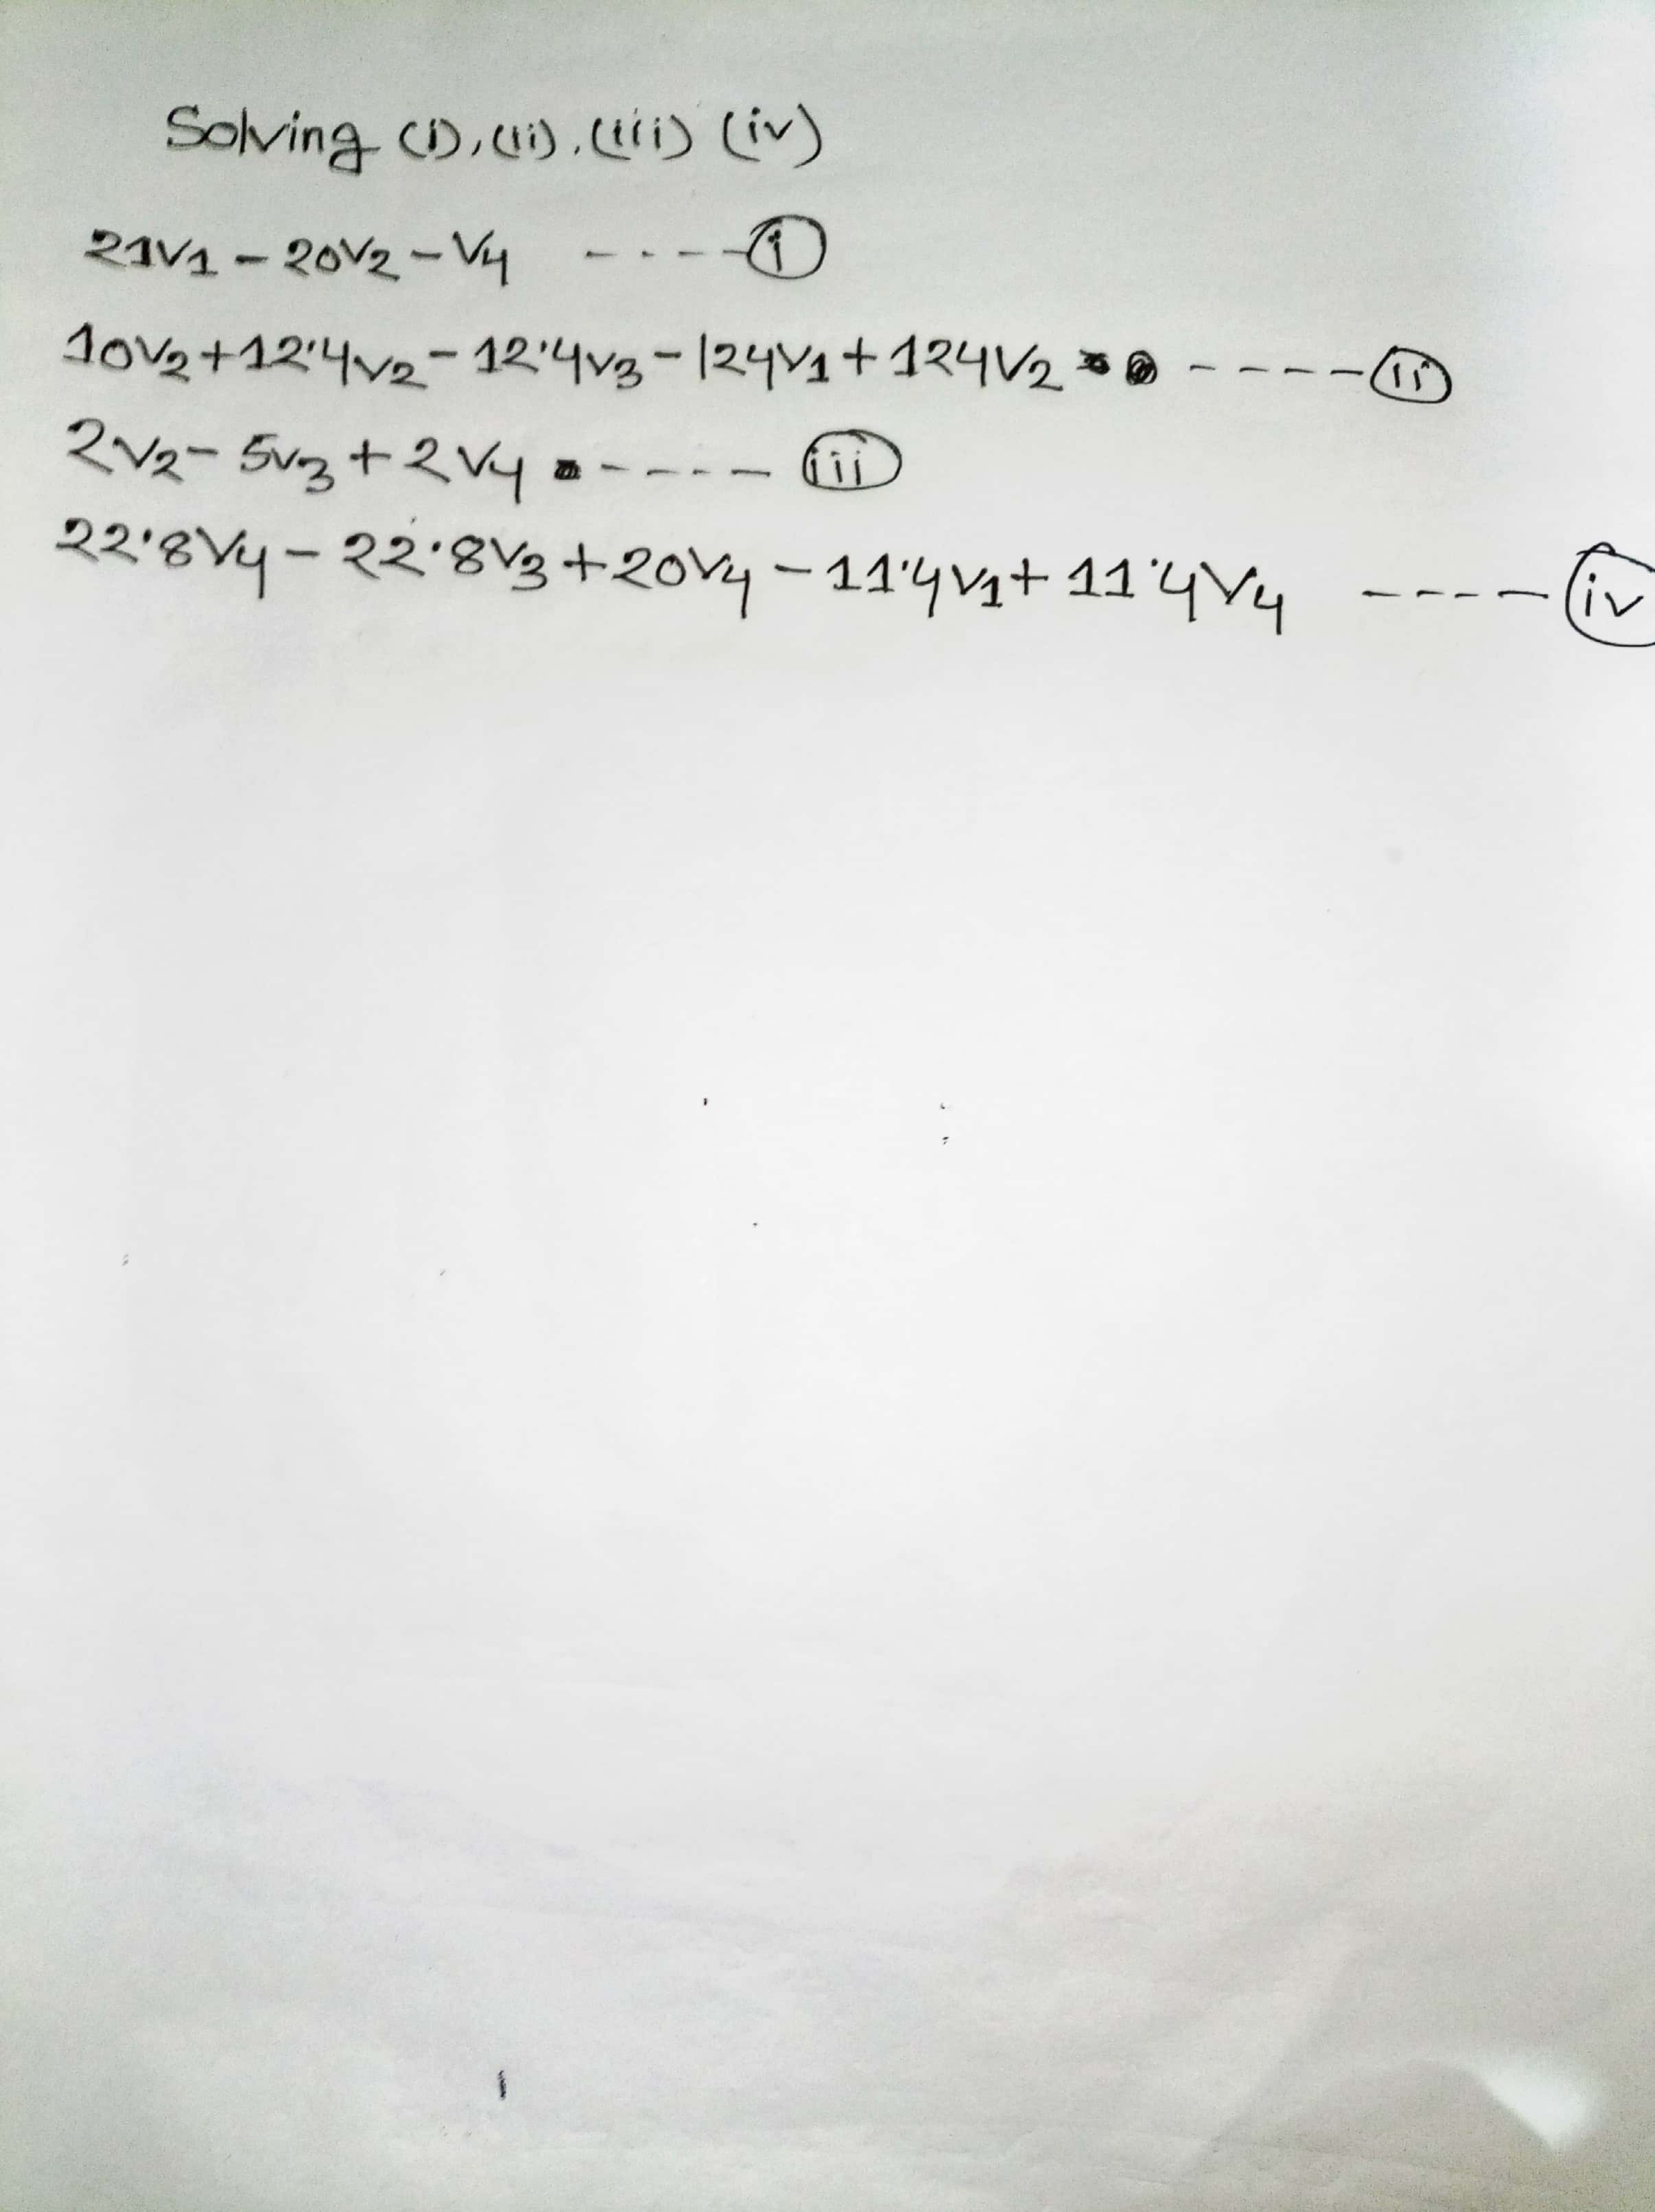 Solving (i), (ii), (iii) (iv)
21V1 - 20V2 - V4 ---- i
10V2 + 12.4V2 - 12.4V3 - 124V1 + 124V2 ---- ii
2V2 - 5V3 + 2V4 ---- iii
22.8V4 - 22.8V3 + 20V4 - 11.4V1 + 11.4V4 ---- iv